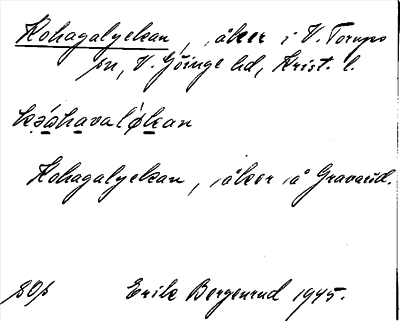 Kohagalyckan, åker i V. Torups
sn, V. Göinge hd, Krist. l.
Kohagalyckan, åker å Gravarid.
Erik Bergenrud 1945.